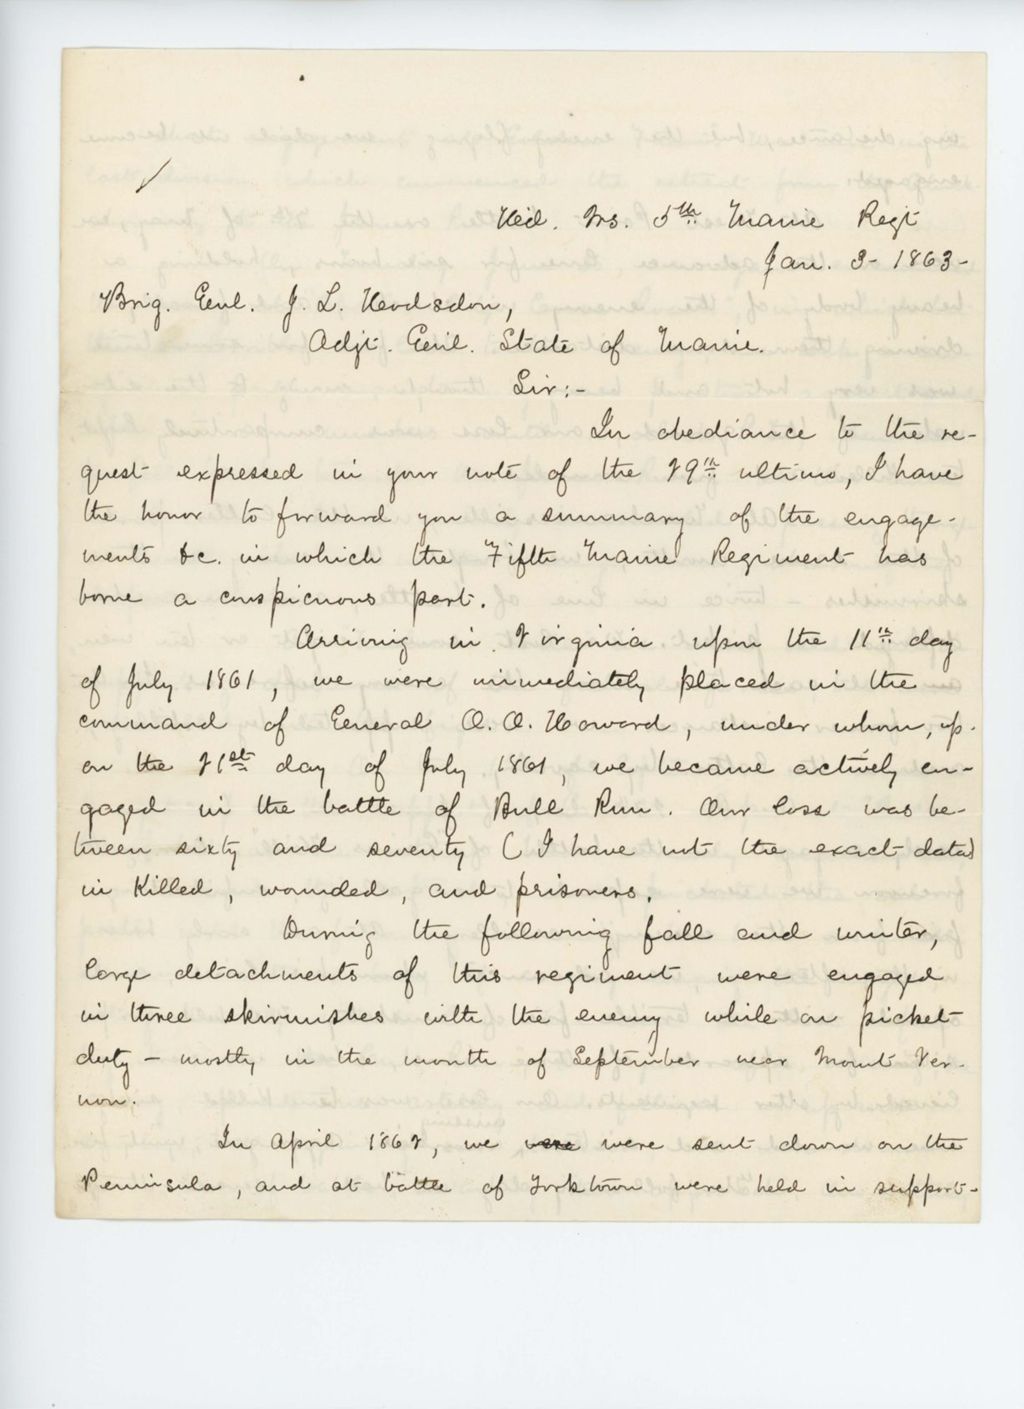 Hed. Qrs. 5th Maine Regt
Jan. 3- 1863-
Brig. Genl. J. L. Hodsdon,
Adjt. Genl. State of Maine.
Sir:-
In obediance to the re-
quest expressed in your note of the 29th ultimo, I have
the honor to forward you a summary of the engage-
ments &c. in which the Fifth Maine Regiment has
borne a conspicuous part.
Arriving in Virginia upon the 11th day
of July 1861, we were immediately placed in the
command of General O. O. Howard, under whom, up-
on the 21st day of July 1861, we became actively en-
gaged in the battle of Bull Run. Our loss was be-
tween sixty and seventy (I have not the exact data)
in Killed, wounded, and prisoners.
During the following fall and winter,
large detachments of this regiment were engaged
in three skirmishes with the enemy while on picket
duty - mostly in the month of September near Mount Ver-
non.
In April 1862, we were were sent down on the
Peninsula, and at battle of Yorktown were held in support-